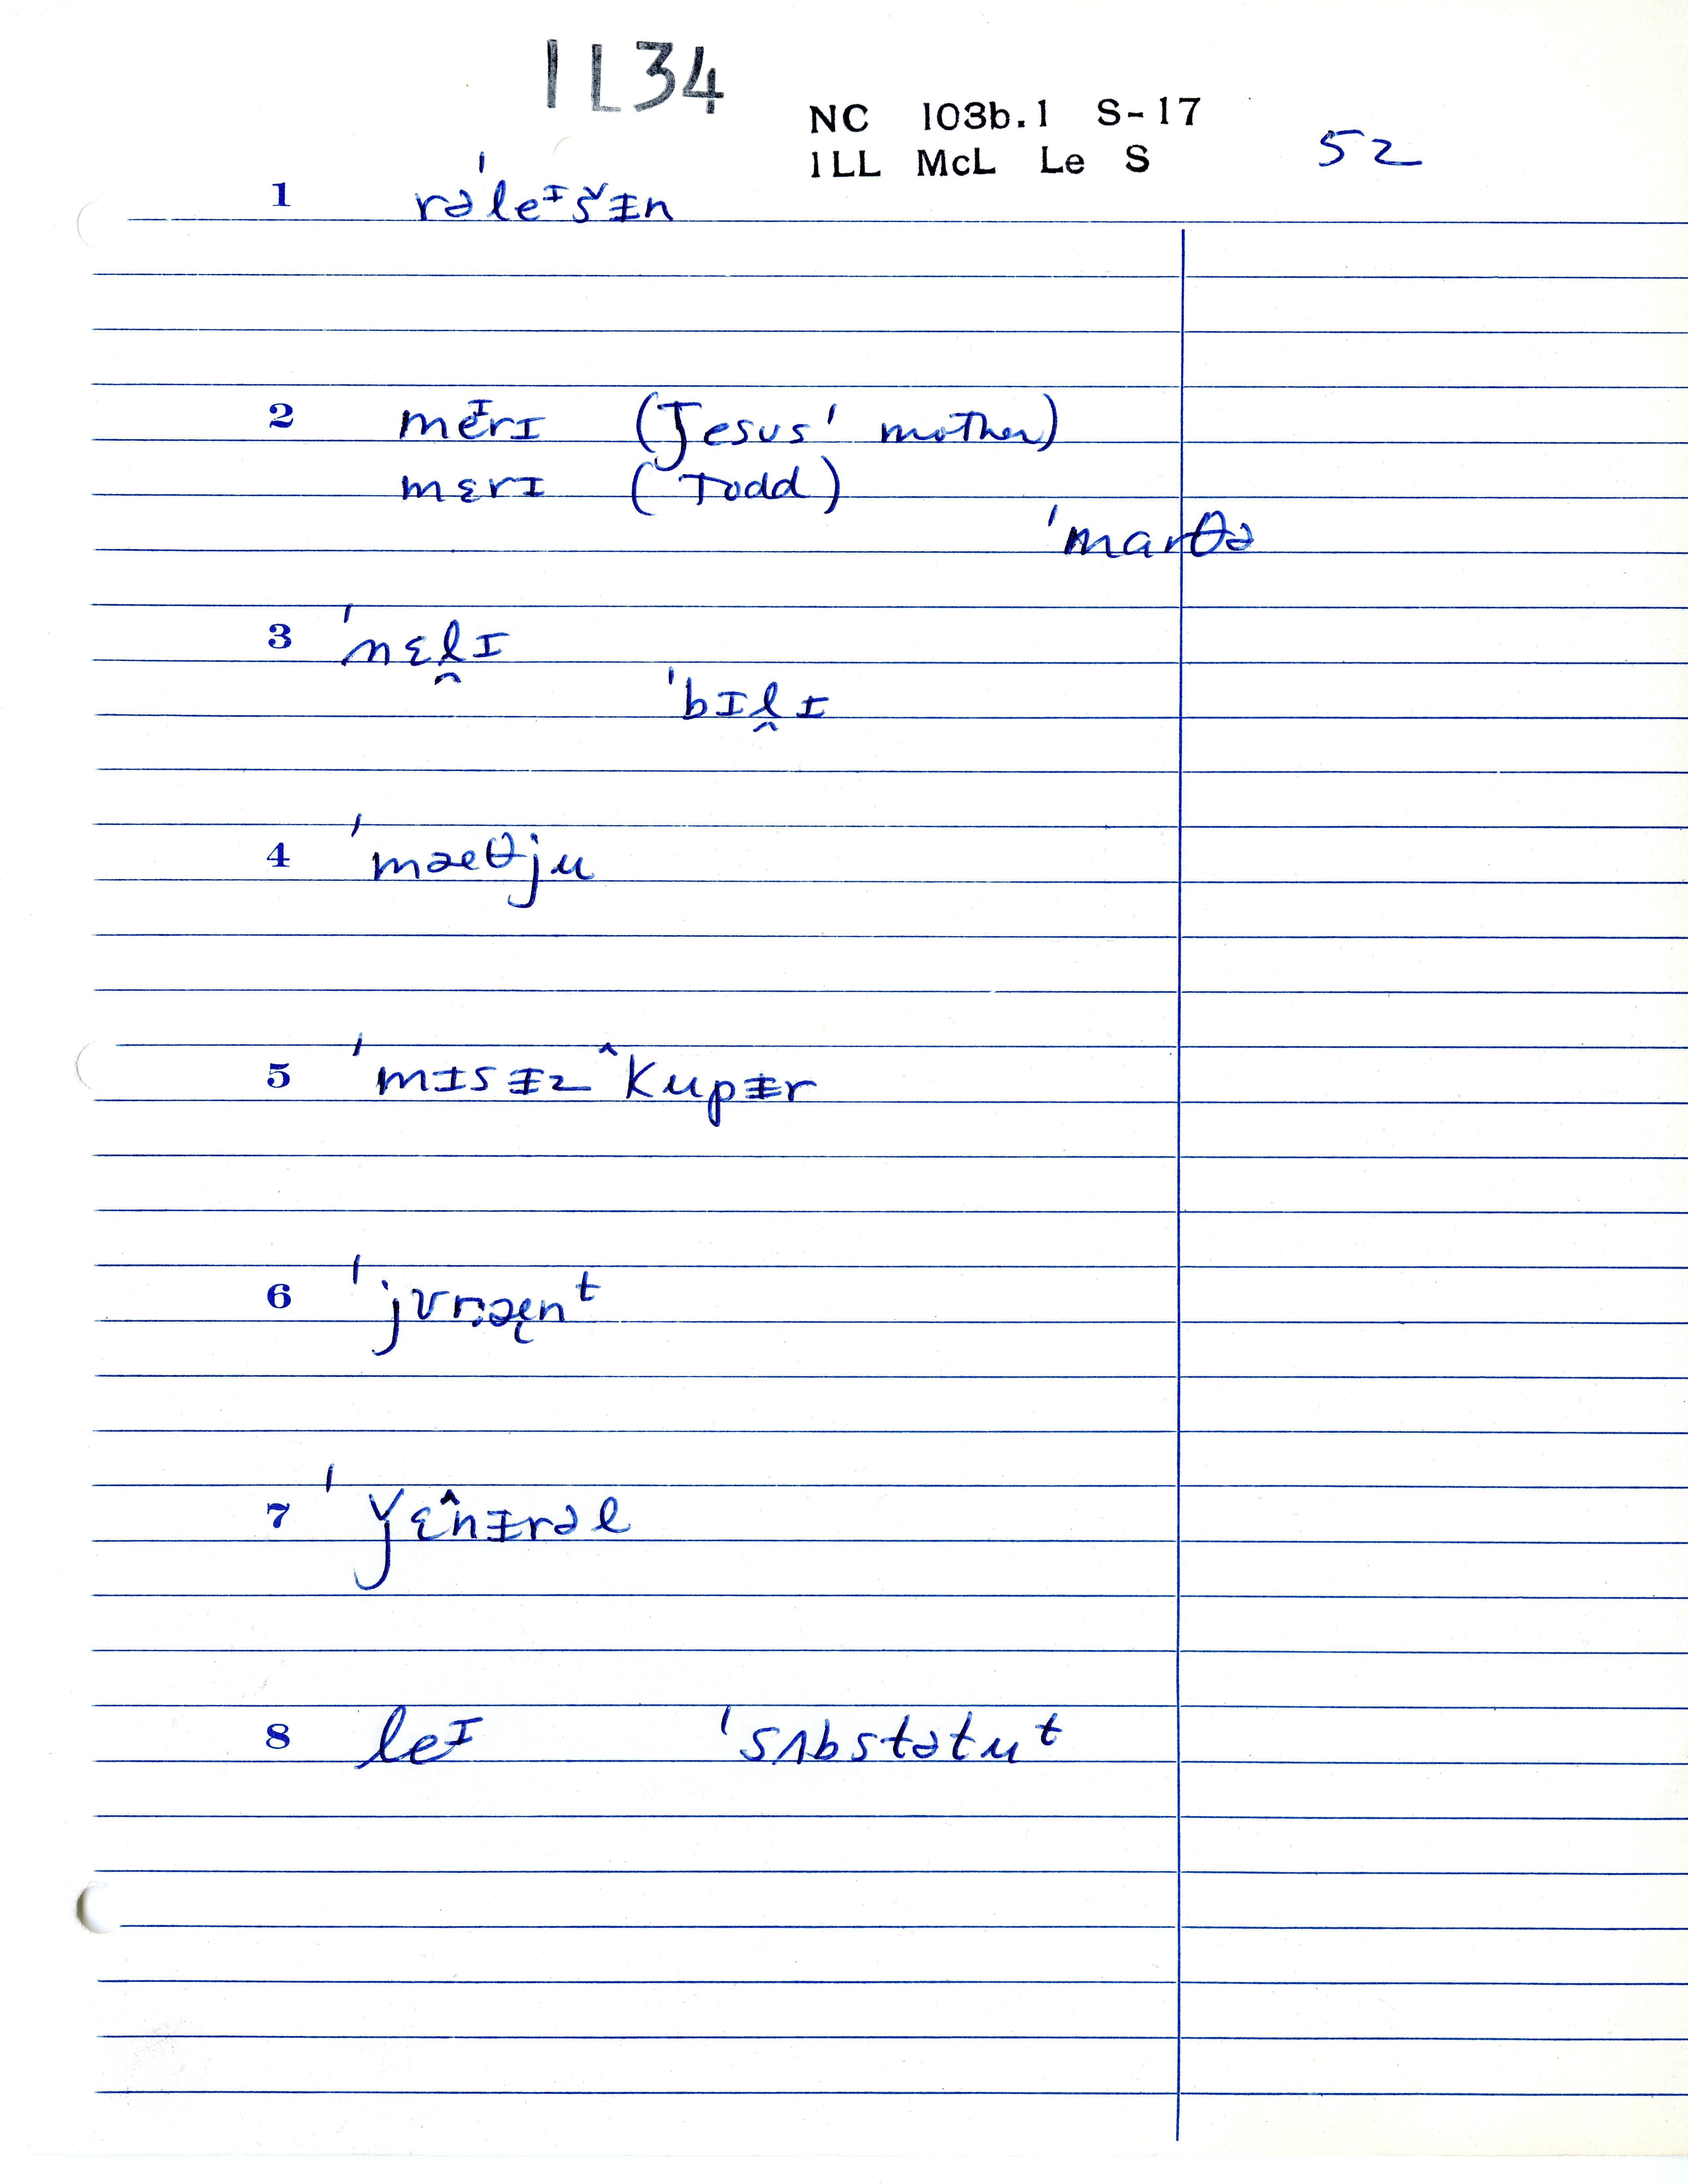 1L34
NC 103b.1 S-17
ILL McL Le S
52
1 rə'leᴵšɨn
2 meᴵrɪ (Jesus' mother)
mɛrɪ (Todd)
'marθə
3 'nɛl̯ɪ
'bɪl̯ɪ
4 'mæθju
5 'mɪsɨz ^kupɨr
6 'jʊr:æ̨nᵗ
7 'ǰɛ^nɨrəl
8 leᴵ 'sʌbstətuᵗ